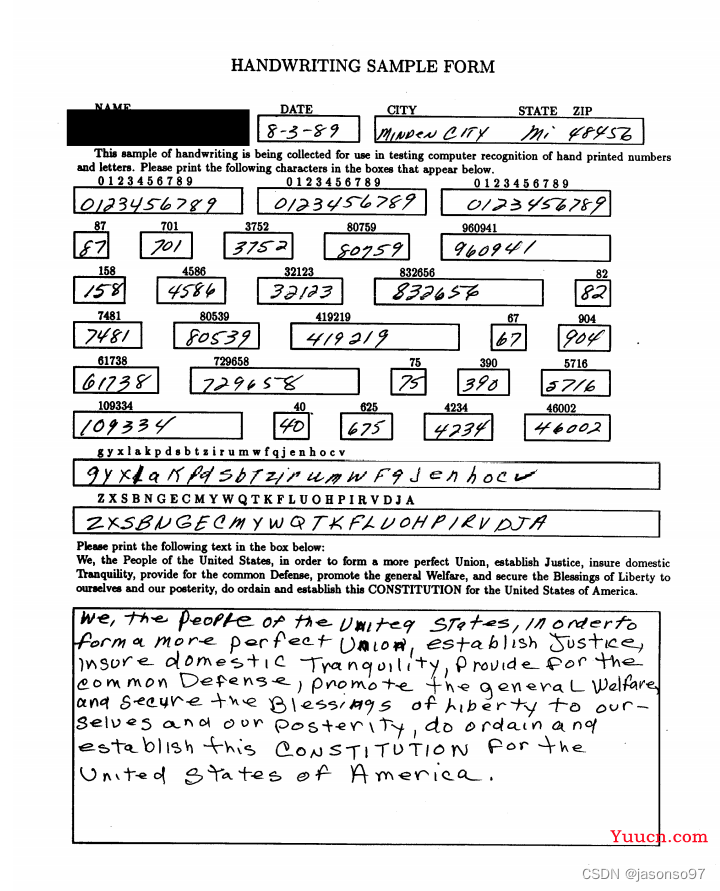 HANDWRITING SAMPLE FORM
NAME DATE CITY STATE ZIP
8-3-89 MINDEN CITY Mi 48456
This sample of handwriting is being collected for use in testing computer recognition of hand printed numbers
and letters. Please print the following characters in the boxes that appear below.
0 1 2 3 4 5 6 7 8 9 0 1 2 3 4 5 6 7 8 9 0 1 2 3 4 5 6 7 8 9
0123456789 0123456789 0123456789
87 701 3752 80759 960941
87 701 3752 80759 960941
158 4586 32123 832656 82
158 4586 32123 832656 82
7481 80539 419219 67 904
7481 80539 419219 67 904
61738 729658 75 390 5716
61738 729658 75 390 5716
109334 40 625 4234 46002
109334 40 675 4234 46002
g y x l a k p d s b t z i r u m w f q j e n h o c v
gyxlaKpdsbTzirumwFqJenhocv
Z X S B N G E C M Y W Q T K F L U O H P I R V D J A
ZXSBNGECMYWQTKFLUOHPIRVDJA
Please print the following text in the box below:
We, the People of the United States, in order to form a more perfect Union, establish Justice, insure domestic
Tranquility, provide for the common Defense, promote the general Welfare, and secure the Blessings of Liberty to
ourselves and our posterity, do ordain and establish this CONSTITUTION for the United States of America.
We, the People of the United States, in order to
form a more perfect Union, establish Justice,
insure domestic Tranquility, Provide for the
common Defense, promote the general Welfare,
and secure the Blessings of Liberty to our-
selves and our posterity, do ordain and
establish this CONSTITUTION for the
United States of America.
Yuucn.com
CSDN @jasonso97